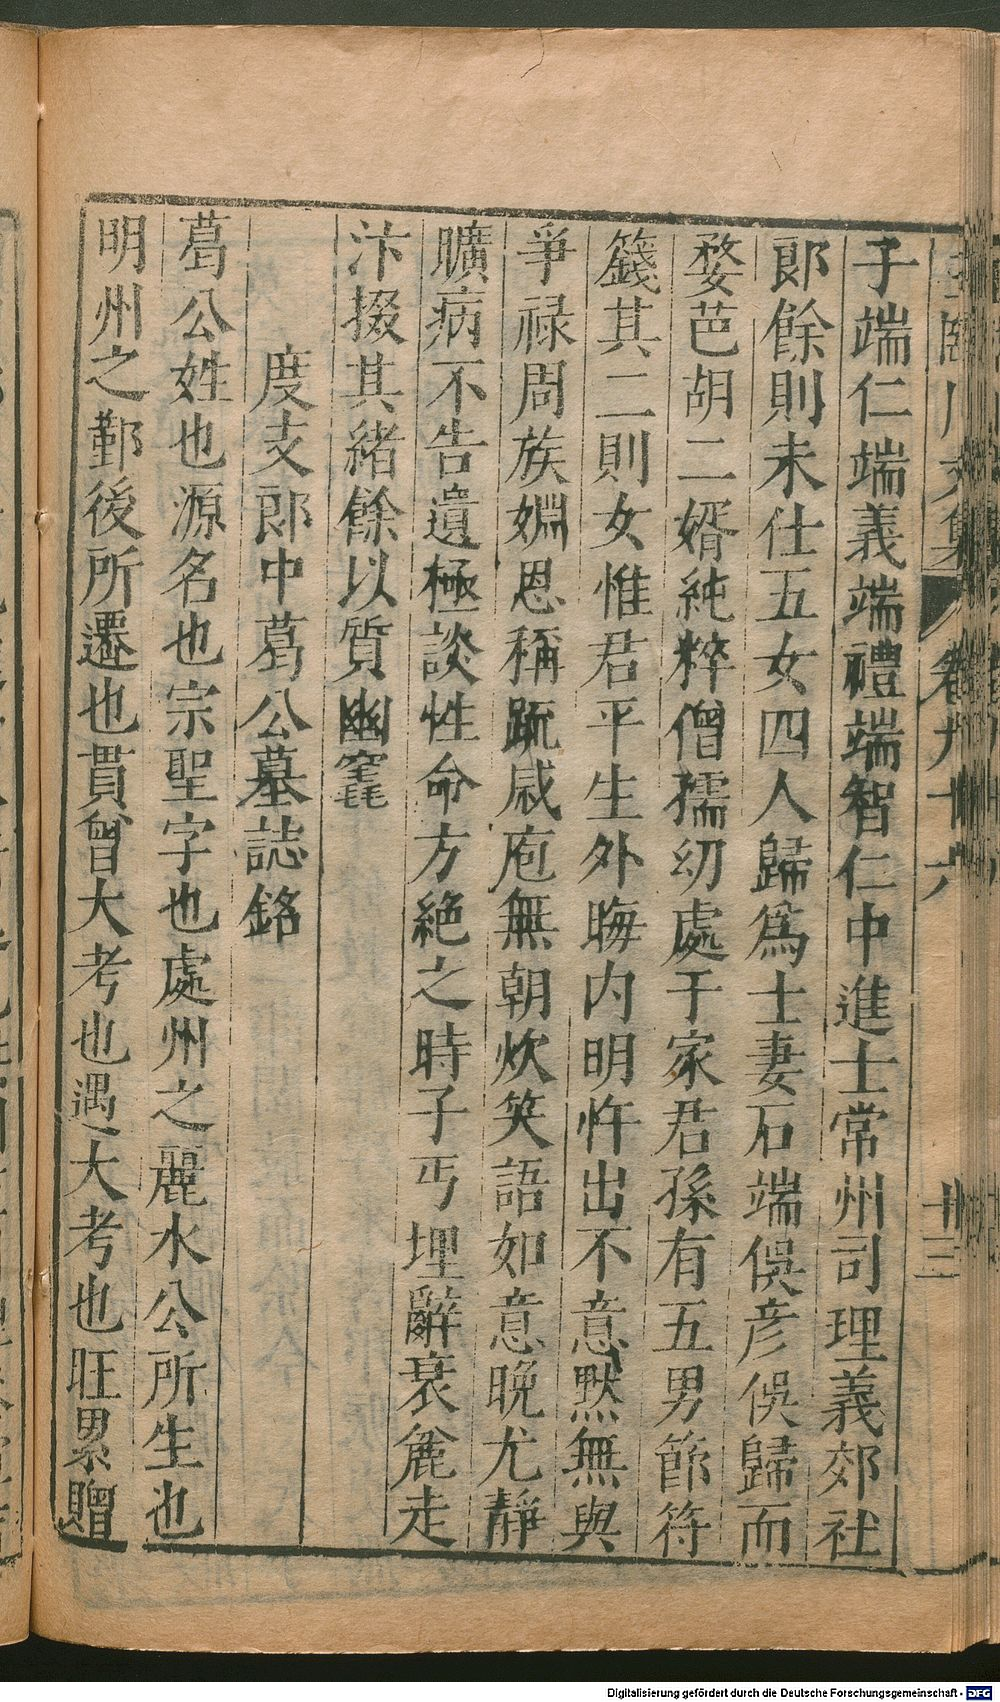 子端仁端義端禮端智仁中進士常州司理義郊社
郎餘則未仕五女四人歸為士妻石端俁彦俁歸而
婺芭胡二婿純粹僧孺幼處于家君孫有五男節符
籛其二則女惟君平生外晦内明忤出不意黙無與
爭禄周族婣恩稱䟽戚庖無朝炊笑語如意晚尤靜
曠病不告遺極談性命方絶之時子丐埋辭衰麄走
汴掇其緒餘以質幽窀
度支郎中葛公墓誌銘
葛公姓也源名也宗聖字也處州之麗水公所生也
明州之鄞後所遷也貫曾大考也遇大考也旺累贈
卷九十六
廿三
Digitalisierung gefördert durch die Deutsche Forschungsgemeinschaft - DFG